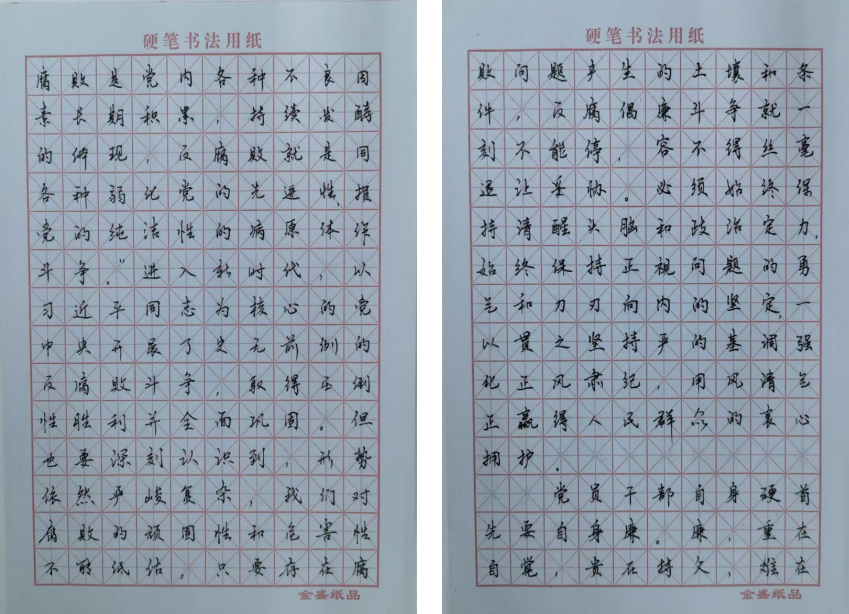 硬笔书法用纸
腐败是党内各种不良因
素长期积累，持续发酵
的体现，反腐败就是同
各种弱化党的先进性、损
党的纯洁性的病原体作
斗争。”进入新时代，以
习近平同志为核心的党
中央开展了史无前例的
反腐败斗争，取得压倒
性胜利并全面巩固。但
也要深刻认识到，形势
依然严峻复杂，我们对
腐败的顽固性和危害性
不能低估。只要存在腐
金盛纸品
硬笔书法用纸
败问题产生的土壤和条
件，反腐倡廉斗争就一
刻不能停，容不得丝毫
退让妥协。必须始终保
持清醒头脑和政治定力，
始终保持正视问题的勇
气和刀刃向内的坚定，一
以贯之坚持严的基调强
化正风肃纪，用风清气
正赢得人民群众的衷心
拥护。
党员干部自身硬首
先要自身廉。廉，重在
自觉，贵在持久，难在
金盛纸品